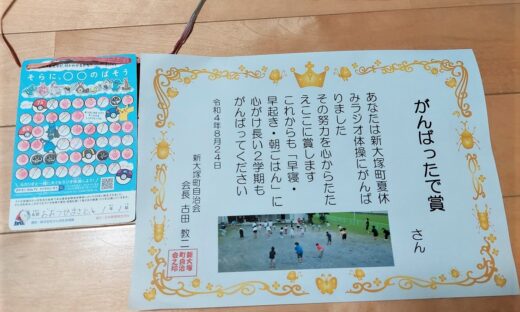 そらに、〇〇のばそう
がんばったで賞
さん
あなたは新大塚町夏休
みラジオ体操にがんば
りました
その努力を心からたた
えここに賞します
これからも「早寝・
早起き・朝ごはん」に
心がけ長い2学期も
がんばってください
令和4年8月24日
新大塚町自治会
会長 古田 教二
新大塚
町自治
会之印